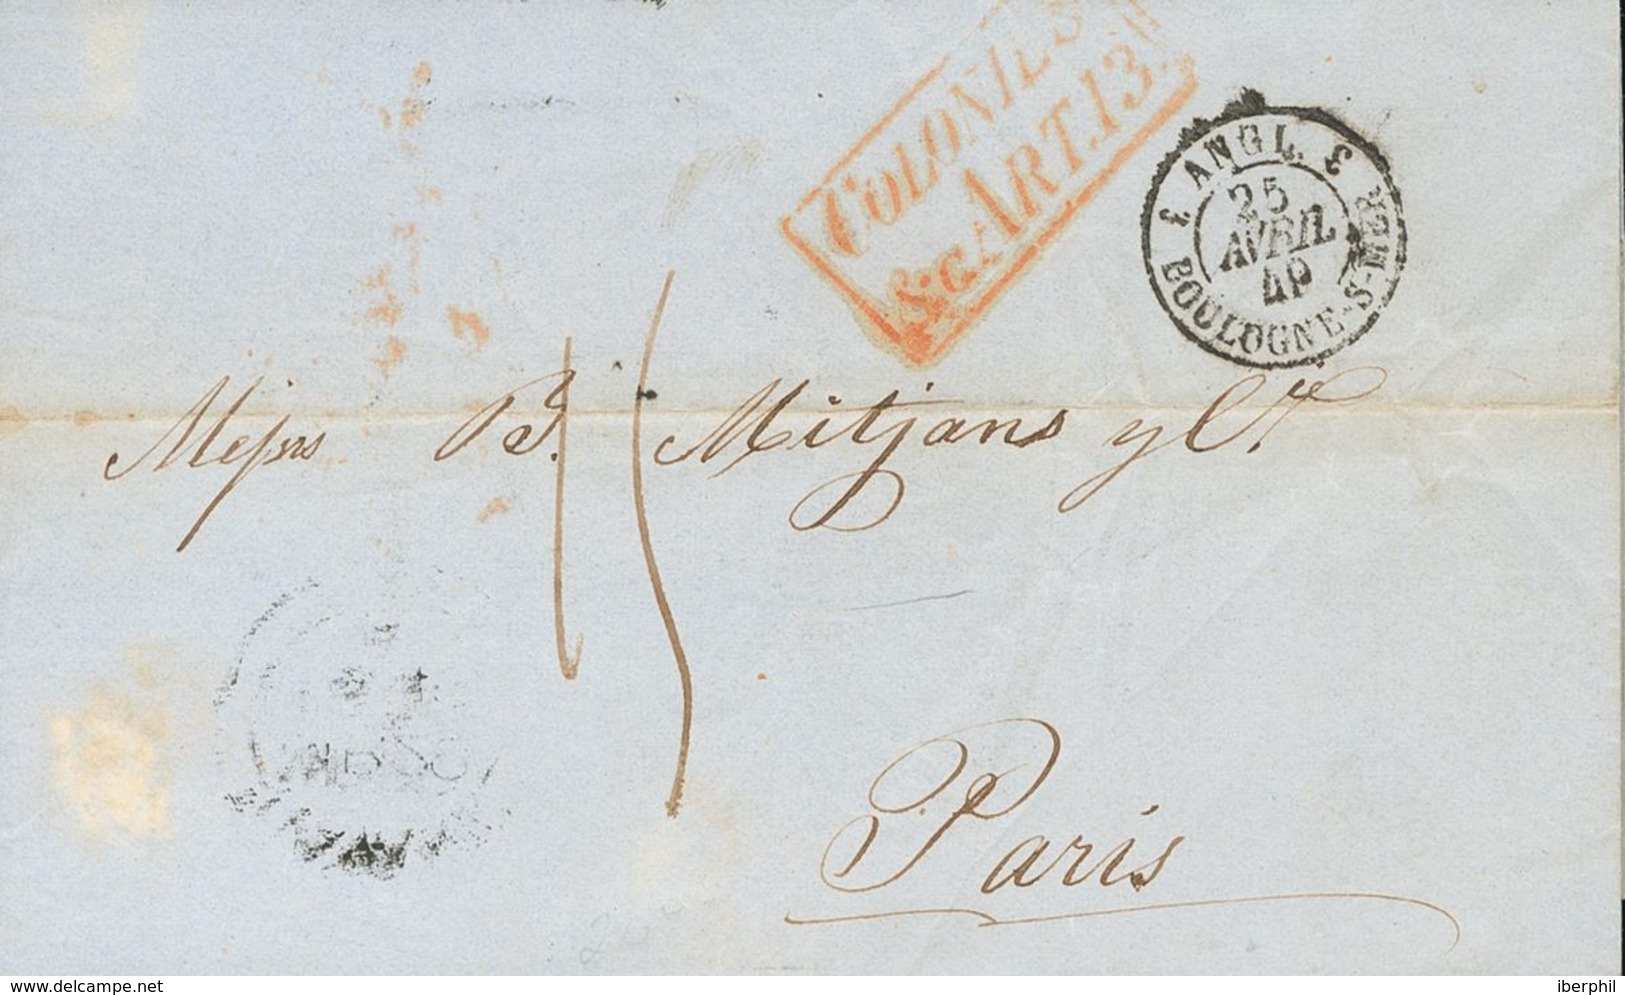 COLONIES
&c. ART.13.
3 ANGL. 3
25
AVRIL
49
BOULOGNE-S-MER
Messrs B. Mitjans y Ca.
15
Paris
iberphil